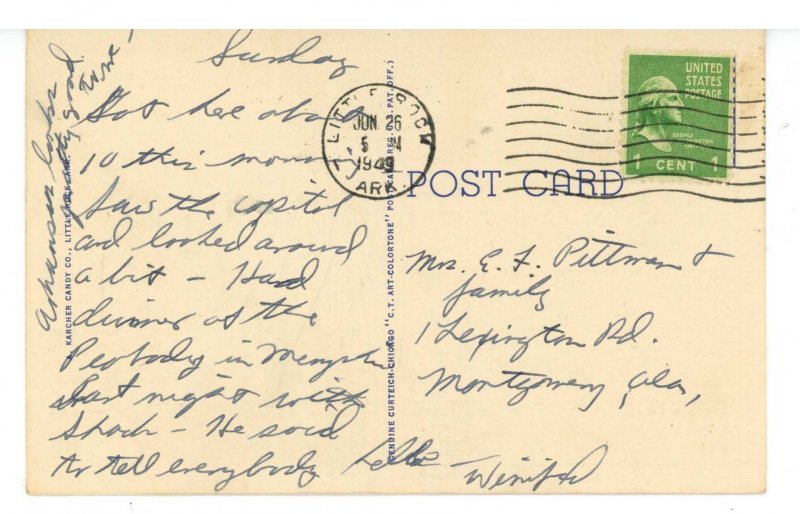 Sunday
Got here about
10 this morning
Saw the capitol
and looked around
a bit – Had
dinner at the
Peabody in Memphis
last night with
– He said
to tell everybody hello –
Winifred
Arkansas looks
pretty good
time!
A. KARCHER CANDY CO., LITTLE ROCK, ARK.
GENUINE CURTEICH-CHICAGO "C.T. ART-COLORTONE" POST CARD (REG. U.S. PAT. OFF.)
LITTLE ROCK
JUN 26
5
1949
ARK.
UNITED
STATES
POSTAGE
GEORGE
WASHINGTON
1 CENT 1
POST CARD
Mrs. E. F. Pittman &
family
1 Lexington Rd.
Montgomery, Ala,